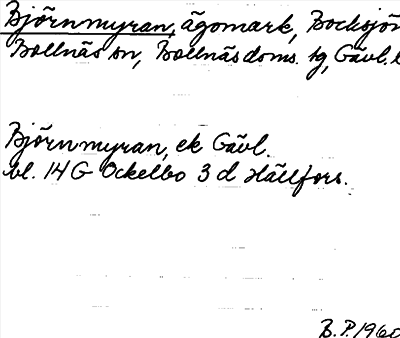 Björnmyran, ägomark, Bocksjön
Bollnäs sn, Bollnäs doms. tg, Gävl. l
Björnmyran, ek Gävl.
bl. 14 G Ockelbo 3 d Hällfors.
B.P. 1960